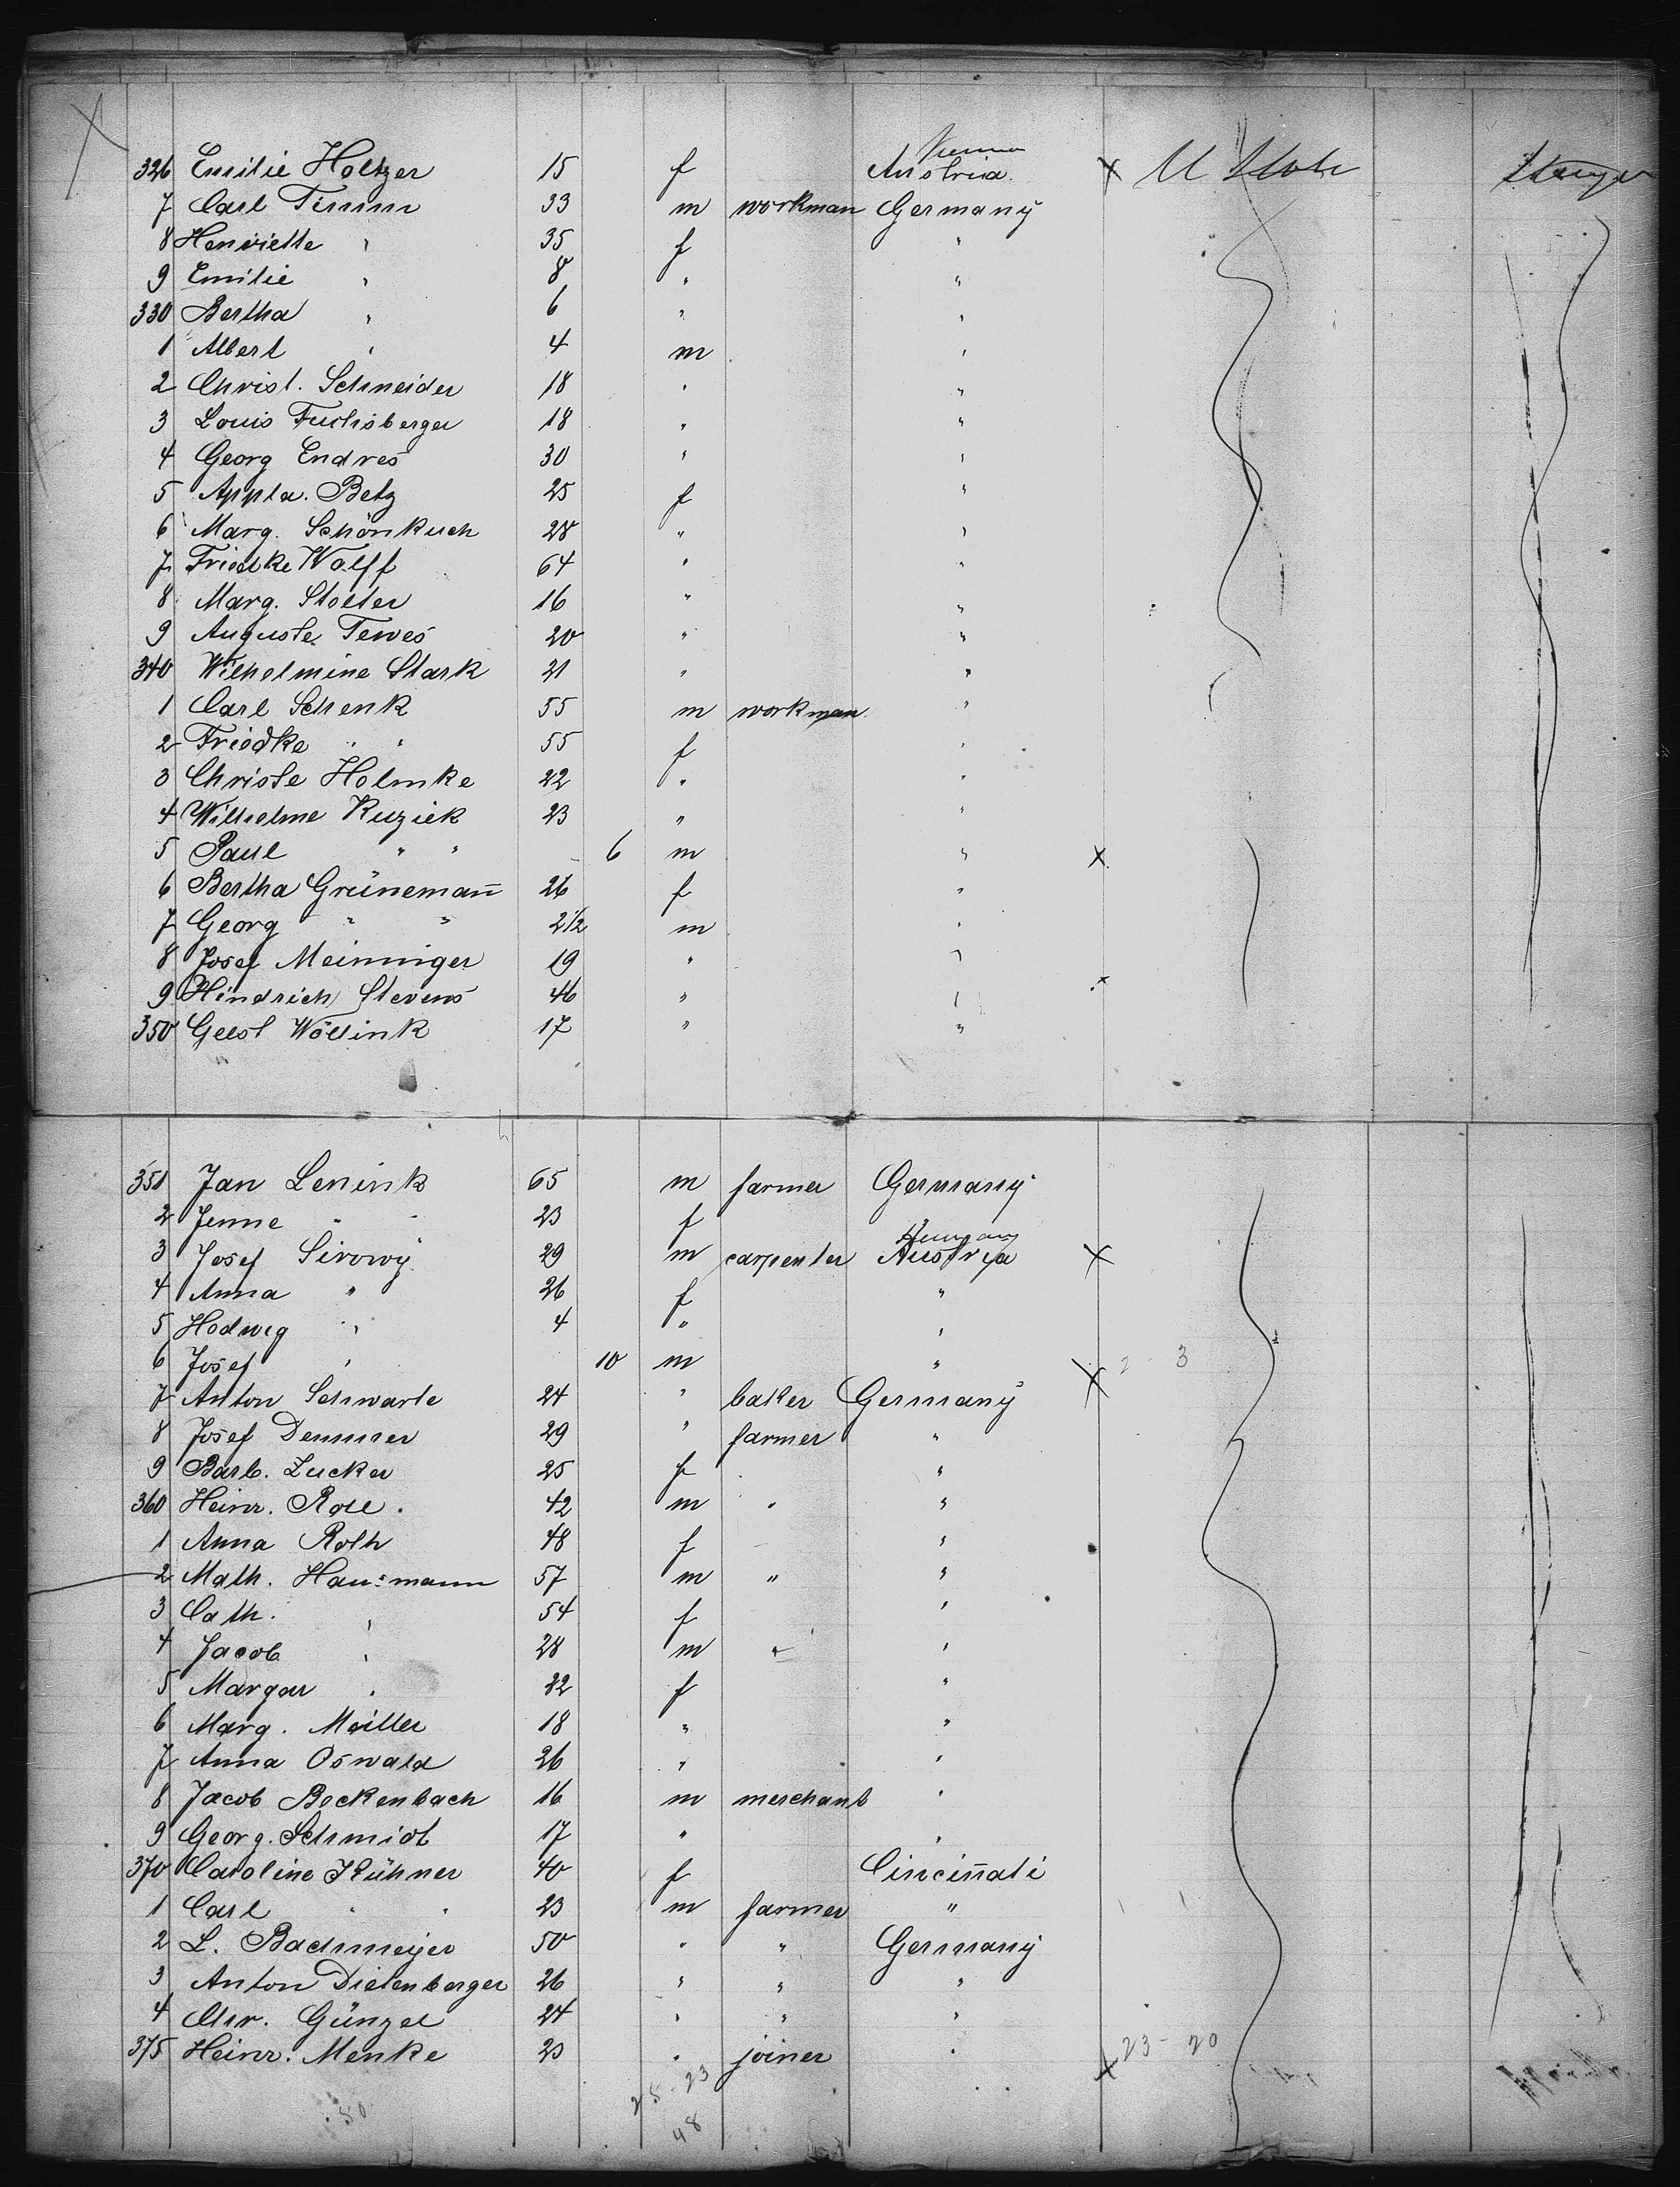 326 Emilie Holtzer 15 f Vienna Austria X U Stats Steerage
7 Carl Timm 33 m workman Germany
8 Henriette " 35 f "
9 Emilie " 8 " "
330 Bertha " 6 " "
1 Albert " 4 m "
2 Christ. Schneider 18 " "
3 Louis Fuchsberger 18 " "
4 Georg Endres 30 " "
5 Appla. Betz 25 f "
6 Marg. Schönkuch 28 " "
7 Friedke Wolff 64 " "
8 Marg. Stölter 16 " "
9 Auguste Tewes 20 " "
340 Wilhelmine Stark 21 " "
1 Carl Schenk 55 m workman "
2 Friedke " " 55 f "
3 Christe Holmke 22 " "
4 Wilhelme Kuziek 23 " "
5 Paul " " 6 m " X
6 Bertha Grünemañ 26 f "
7 Georg " " 2 1/2 m "
8 Josef Meinniger 19 " "
9 Hindrich Stevens 46 " " x
350 Geest Wöllink 17 " "
351 Jan Lenink 65 m farmer Germany
2 Jenne " " 23 f
3 Josef Sirowy 29 m carpenter Hungary Austria X
4 Anna " 26 f "
5 Hedwig " 4 " "
6 Josef " 10 m " X 2 - 3
7 Anton Schwarte 24 " baker Germany
8 Josef Demmer 29 " farmer "
9 Barb. Zucker 25 f "
360 Heinr. Rose. 42 m " "
1 Anna Roth 48 f "
2 Math. Hausmann 57 m " "
3 Cath. " 54 f "
4 Jacob " 28 m " "
5 Margar " 22 f "
6 Marg. Meiller 18 " "
7 Anna Oswald 26 " "
8 Jacob Beckenbach 16 m merchant "
9 Georg. Schmidt 17 " "
370 Caroline Kühner 40 f Cinciñati
1 Carl " " 23 m farmer "
2 L. Bachmeyer 50 " " Germany
3 Anton Dietenberger 26 " " "
4 Chr. Günzel 24 " " "
375 Heinr. Menke 23 " joiner " X 23 - 20
25 - 23
50
48